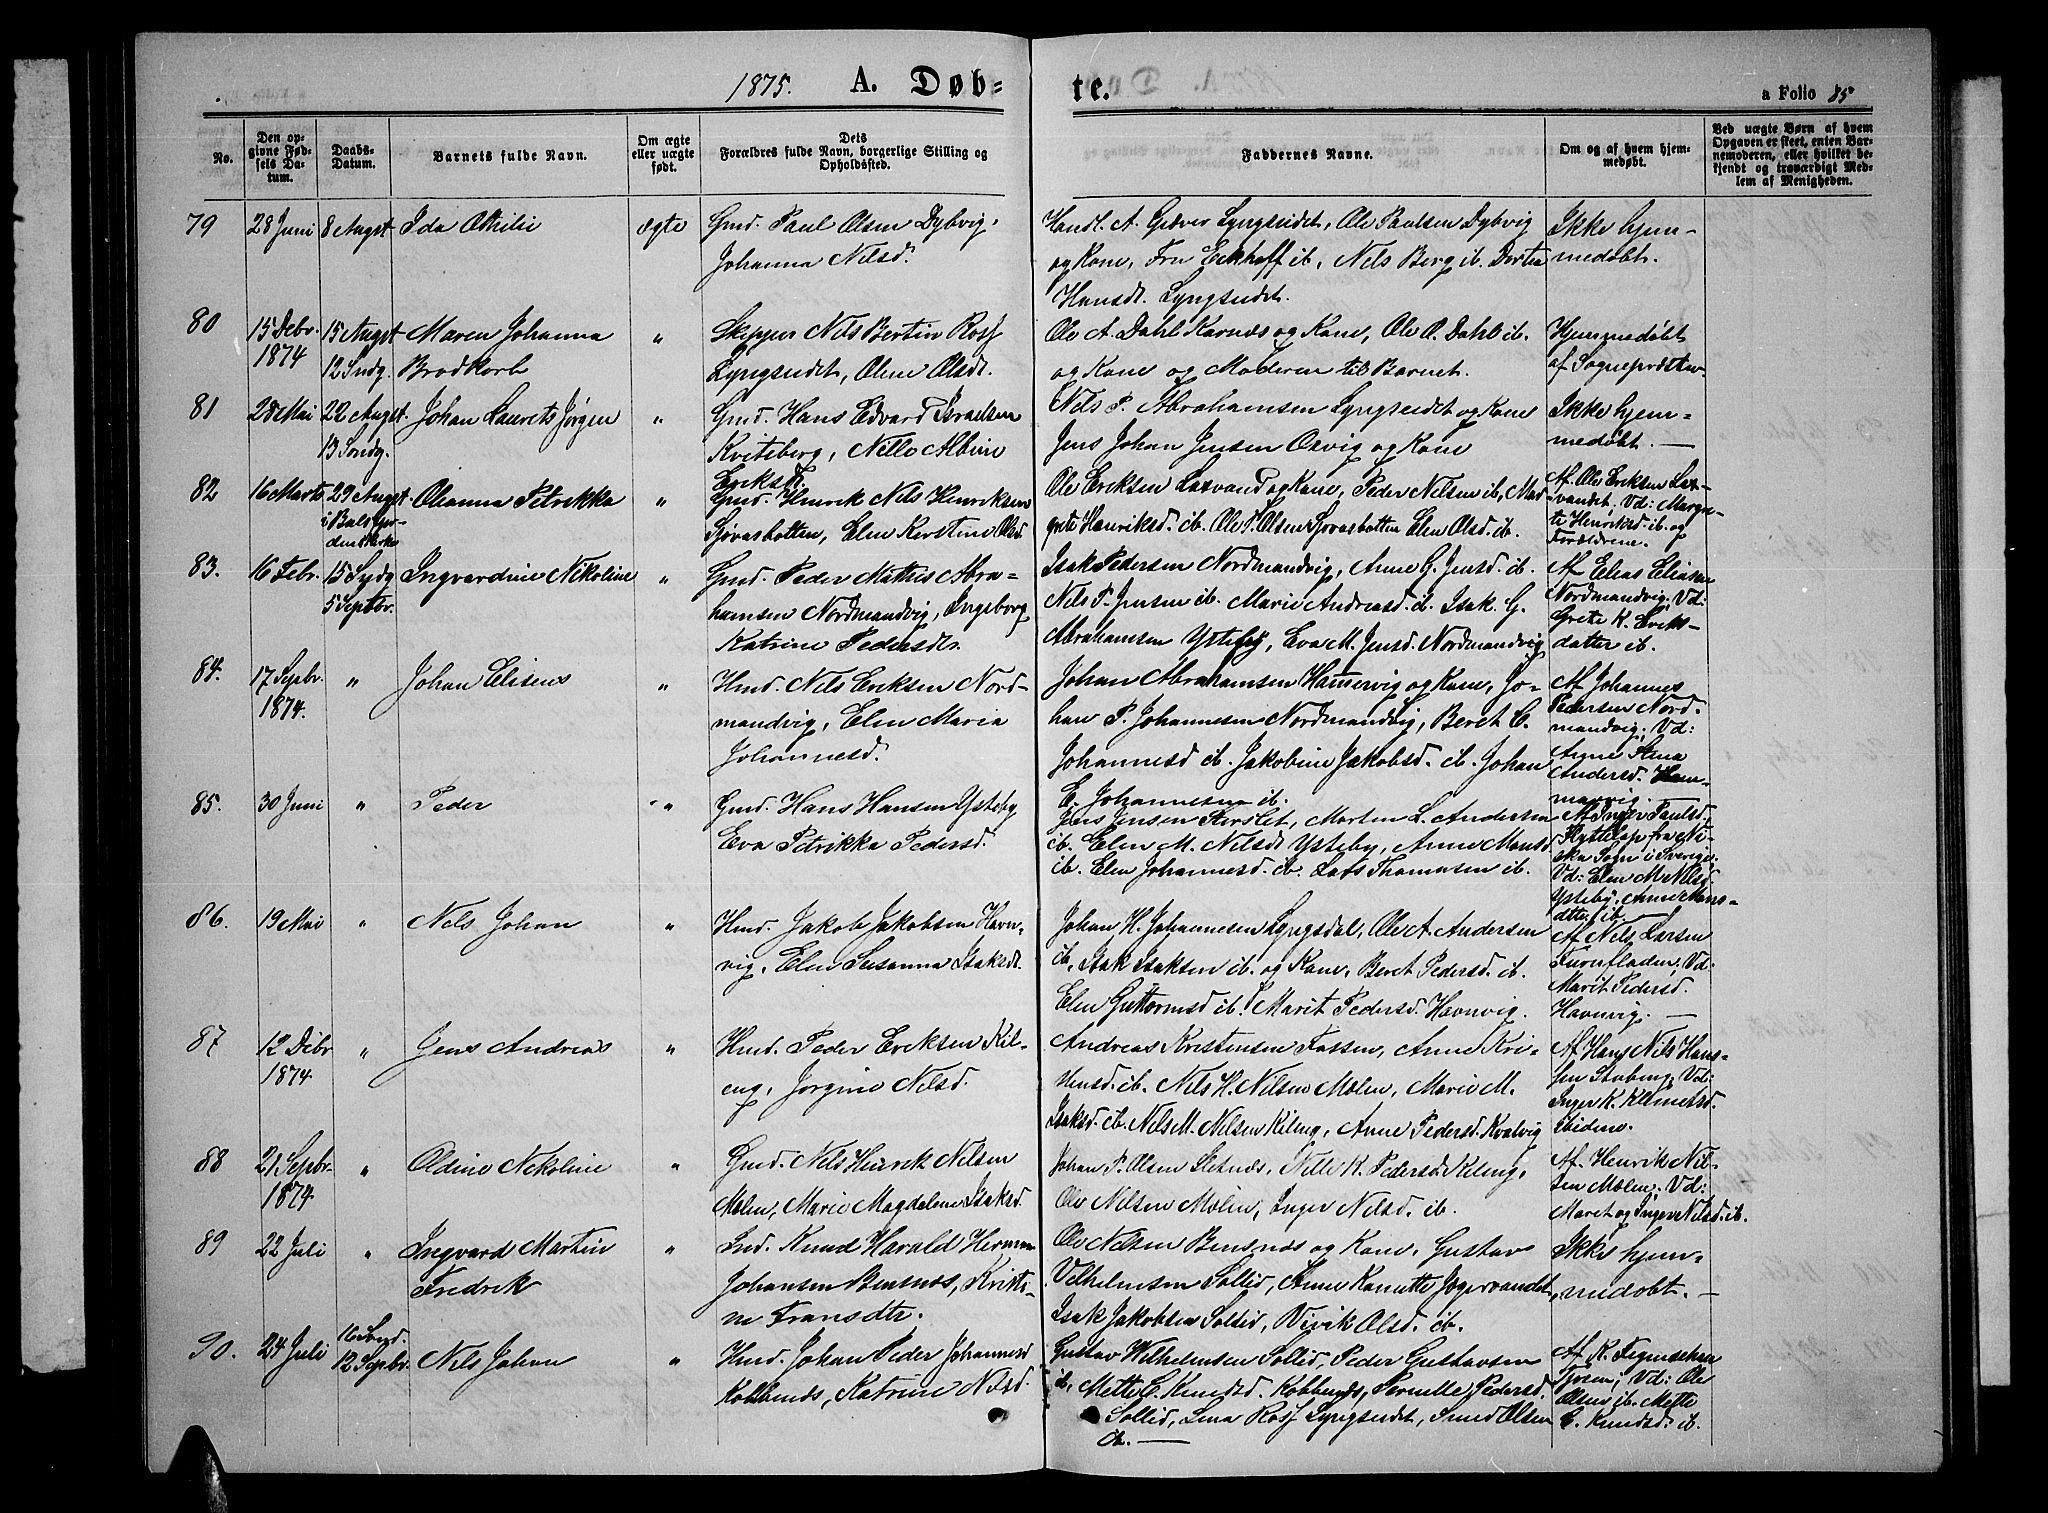 1875. A. Døb=
te.
a Folio 85
No.
Den op=
givne Fød=
sels Da=
tum.
Daabs=
Datum.
Barnets fulde Navn.
Om ægte
eller uægte
født.
Dets
Forældres fulde Navn, borgerlige Stilling og
Opholdssted.
Faddernes Navne.
Om og af hvem hjem=
medøbt.
Ved uægte Børn af hvem
Opgaven er skeet, enten Bar=
nemoderen, eller hvilket be=
kjendt og troværdigt Med=
lem af Menigheden.
79
28 Juni
8 Augst
Ida Othilie
ægte
Gmd. Paul Olsen Dybvig,
Johanna Nilsd.
Handl. A. Giæver Lyngseidet, Ole Paulsen Dybvig
og Kone, Fru Eckhoff ib, Nels Berg ib. Dortea
Hansdt. Lyngseidet.
Ikke hjem-
medøbt.
80
15 Debr.
1874
15 Augst
12 Sndg.
Maren Johanna
Brodkorb
"
Skipper Nils Bertin Rosf
Lyngseidet, Oline Olsdt.
Ole A. Dahl Karnæs og Kone, Ole O. Dahl ib.
og Kone og Moderen til Barnet.
Hjemmedøbt
af Sognepræsten.
81
28 Mai
22 Augst.
13 Sondg.
Johan Laurets Jørgen
"
Gmd. Hans Edvard Israelsen
Kviteberg, Nille Albine
Eriksd.
Nils P. Abrahamsen Lyngseidet og Kone
Jens Johan Jensen Oxvig og Kone
Ikke hjem-
medøbt. —
82
16 Marts
29 Augst.
i Balsfjor-
dens Kirke
Oleanna Petrikka
"
Gmd. Henrik Nils Henriksen
Sjøvasbotten, Elen Kerstine Olsd.
Ole Eriksen Laxvand og Kone, Peder Nelsen ib, Mar
grete Henriksd. ib. Ole T. Olsen Sjovasbotten Elen Olsd. ib.
Af Ole Eriksen Lax-
vandet. Vd: Margre-
te Henriksd ib. og
Forældrene.
83.
16 Febr.
15 Sndg
5 Septbr.
Ingvardine Nikoline
"
Gmd. Peder Mathis Abra-
hamsen Nordmandvig, Ingeborg
Katrine Pedersdtr.
Isak Pedersen Nordmandvig, Anne G. Jensd. ib.
Nils P. Jensen ib. Marie Andreasd. ib. Isak G.
Abrahamsen Ysteby, Eva M. Jensd. Nordmandvig
Af Elias Eliasen
Nordmandvig. Vd:
Grete K. Eriks-
datter ib.
84.
17 Sepbr.
1874.
"
Johan Elisens
"
Hmd. Nils Eriksen Nord-
mandvig, Elen Maria
Johannesd.
Johan Abrahamsen Hamervig og Kone, Jo-
han P. Johannesen Nordmandvig, Beret E.
Johannesd ib. Jakobine Jakobsd. ib. Johan
E. Johannesen ib.
Af Johannes
Pedersen Nord-
mandvig; Vd:
Anne Stena
Andersd. Ham-
marvig. —
85.
30 Juni
"
Peder
"
Gmd. Hans Hansen Ysteby
Eva Petrikka Pedersd.
Jens Jensen Storslet, Morten L. Andersen
ib. Elen M. Nilsdt Ysteby, Anne Monsd.
ib. Elen Johannesd. ib. Lars Thomasen ib.
Af Inger Paulsd.
Flyttelap fra
Sogn i Sverige.
Vd: Elen M. Nilsd.
Ysteby, Anne Mons-
dtter ib.
86.
19 Mai
"
Nels Johan
"
Hmd. Jakob Jakobsen Havn-
vig, Elen Susanna Isaksdt.
Johan H. Johannesen Lyngsdal, Ole A. Andersen
ib, Isak Isaksen ib. og Kone, Beret Pedersd. ib.
Elen Guttormsd ib. Marit Pedersd. Havnvig.
Af Nils Larsen
Furufladen, Vd:
Marit Pedersd.
Havnvig. —
87
12 Debr
1874
"
Jens Andreas
"
Hmd. Peder Eriksen Kil-
eng, Jorgine Nilsd.
Andreas Kristensen Fossen, Anne Kri-
stensd. ib. Nils H. Nilsen Molen, Marie M.
Isaksd. ib. Nils M. Nilsen Kileng, Anne Pedersd. Kvalvig
Af Hans Nils Hans-
sen Stubeng, Vd:
Inger K. Klemetsd.
ibidem.
88
21 Sepbr.
1874
"
Oldine Nekoline
"
Gmd. Nils Henrik Nilsen
Molen, Marie Magdalene Isaksd.
Johan P. Olsen Sletnæs, Nille K. Pedersd. Kileng,
Ole Nilsen Molen, Inger Nilsd. ib.
Af. Henrik Nil-
sen Molen; Vd:
Maret og Inger Nilsd. ib.
89
22 Juli
"
Ingvard Martin
Fredrik
"
Ind. Knud Harald Herman
Johansen Bensnæs, Kristi-
ne Fransdtr.
Ole Nilsen Bensnæs og Kone, Gustav
Vilhelmsen Sollid, Anne Kanutte Jægervandet,
Isak Jakobsen Sollid, Vivik Olsd. ib.
Ikke hjem-
medobt. —
90.
24 Juli
16 Sond.
12 Sepbr.
Nils Johan
"
Hmd. Johan Peder Johannesd
Kobbenæs, Katrine Nilsd.
Gustav Wilhelmsen Sollid, Peder Gustavsen
ib, Mette E. Knudsd. Kobbenæs, Pernelle Pedersd.
Sollid, Lina Rosf Lyngseidet, Olsen
ib. —
Af K.
Vd: Ole
Olsen ib. Mette
E. Knudsd. ib.